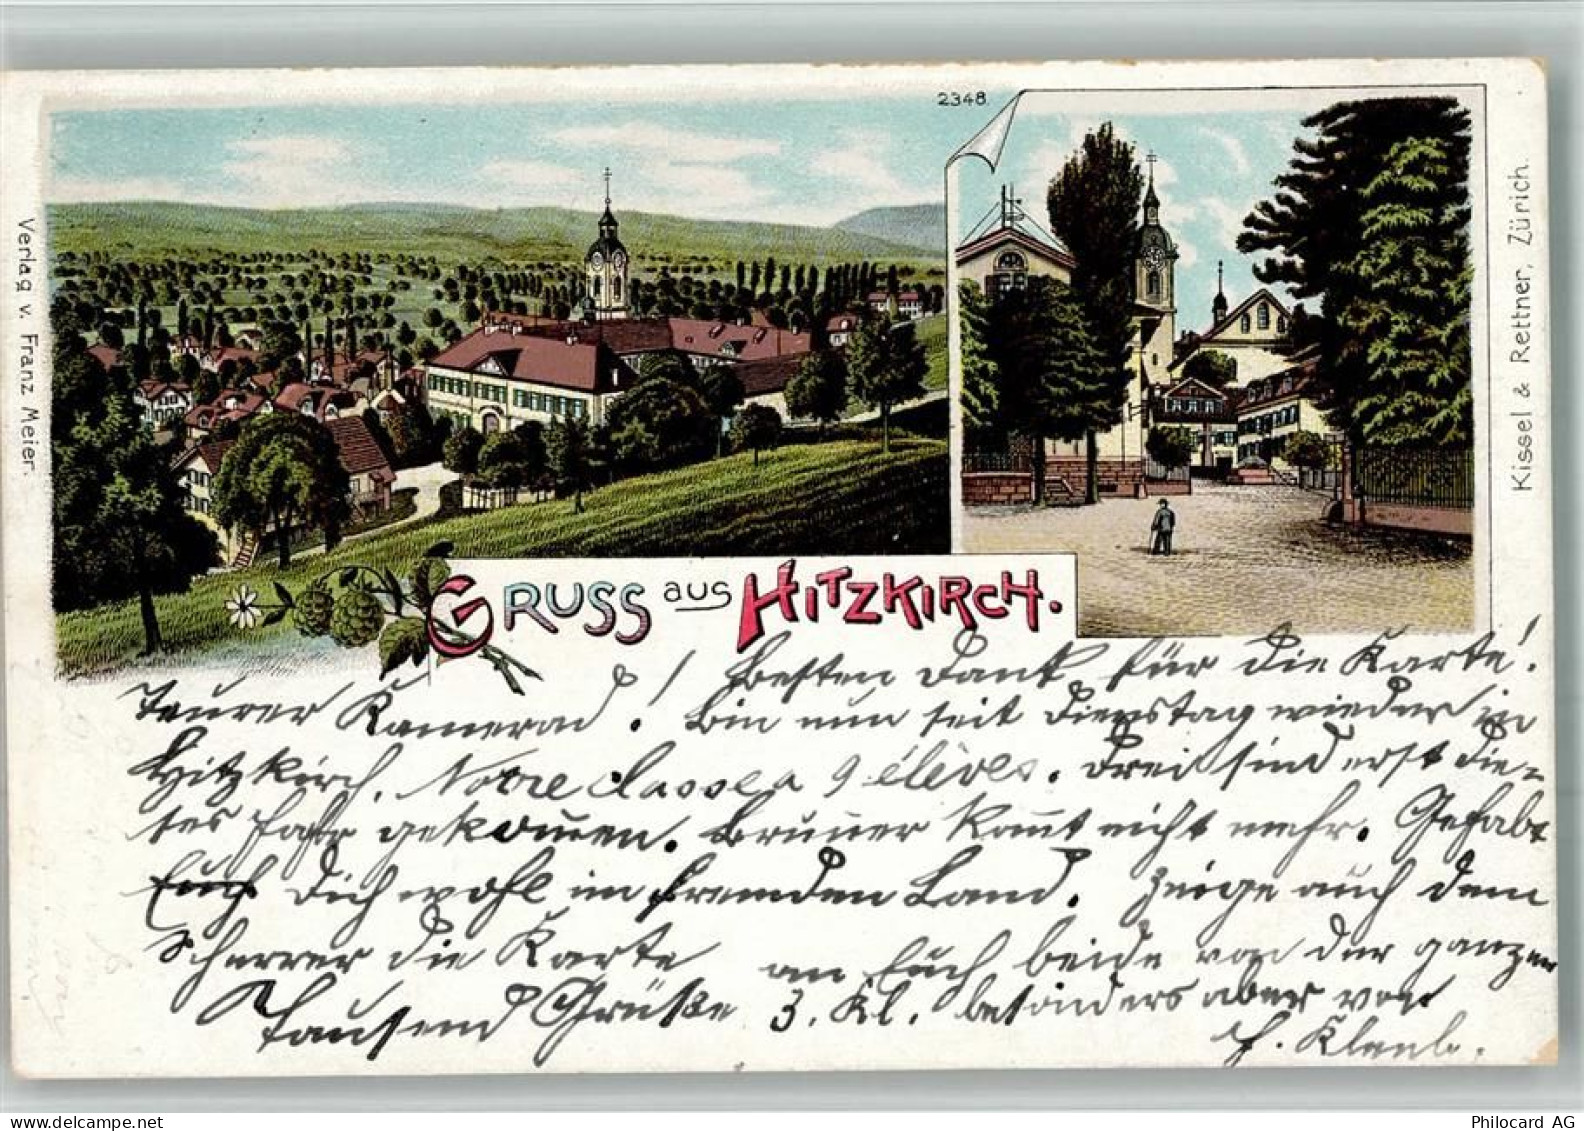 2348
Verlag v. Franz Meier.
Kissel & Rettner, Zürich.
GRUSS aus HITZKIRCH.
Teurer Kamerad! Besten Dank für die Karte!
Bin nun seit Dienstag wieder in
Hitzkirch. Notre classe a 9 élèves. Drei sind erst die-
ses Jahr gekommen. Brunner kommt nicht mehr. Gehabt
Euch Dich wohl im fremden Land. Zeige auch dem
Scherrer die Karte
Tausend Grüße an Euch beide von der ganzen
3. Kl. besonders aber von
delcampe.net
Philocard AG